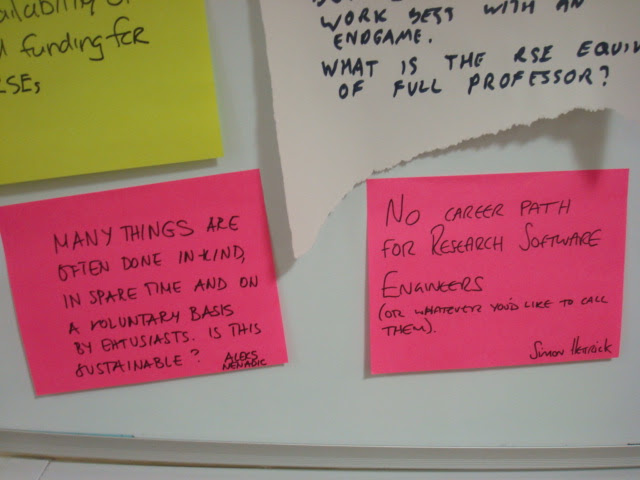 funding for
RSEs
WORK BEST WITH AN
ENDGAME.
WHAT IS THE RSE EQUIV
OF FULL PROFESSOR?
MANY THINGS ARE
OFTEN DONE IN-KIND,
IN SPARE TIME AND ON
A VOLUNTARY BASIS
BY EHTUSIASTS. IS THIS
SUSTAINABLE?
ALEKS
NENADIC
NO CAREER PATH
FOR RESEARCH SOFTWARE
ENGINEERS
(OR WHATEVER YOU'D LIKE TO CALL
THEM).
Simon Hettrick